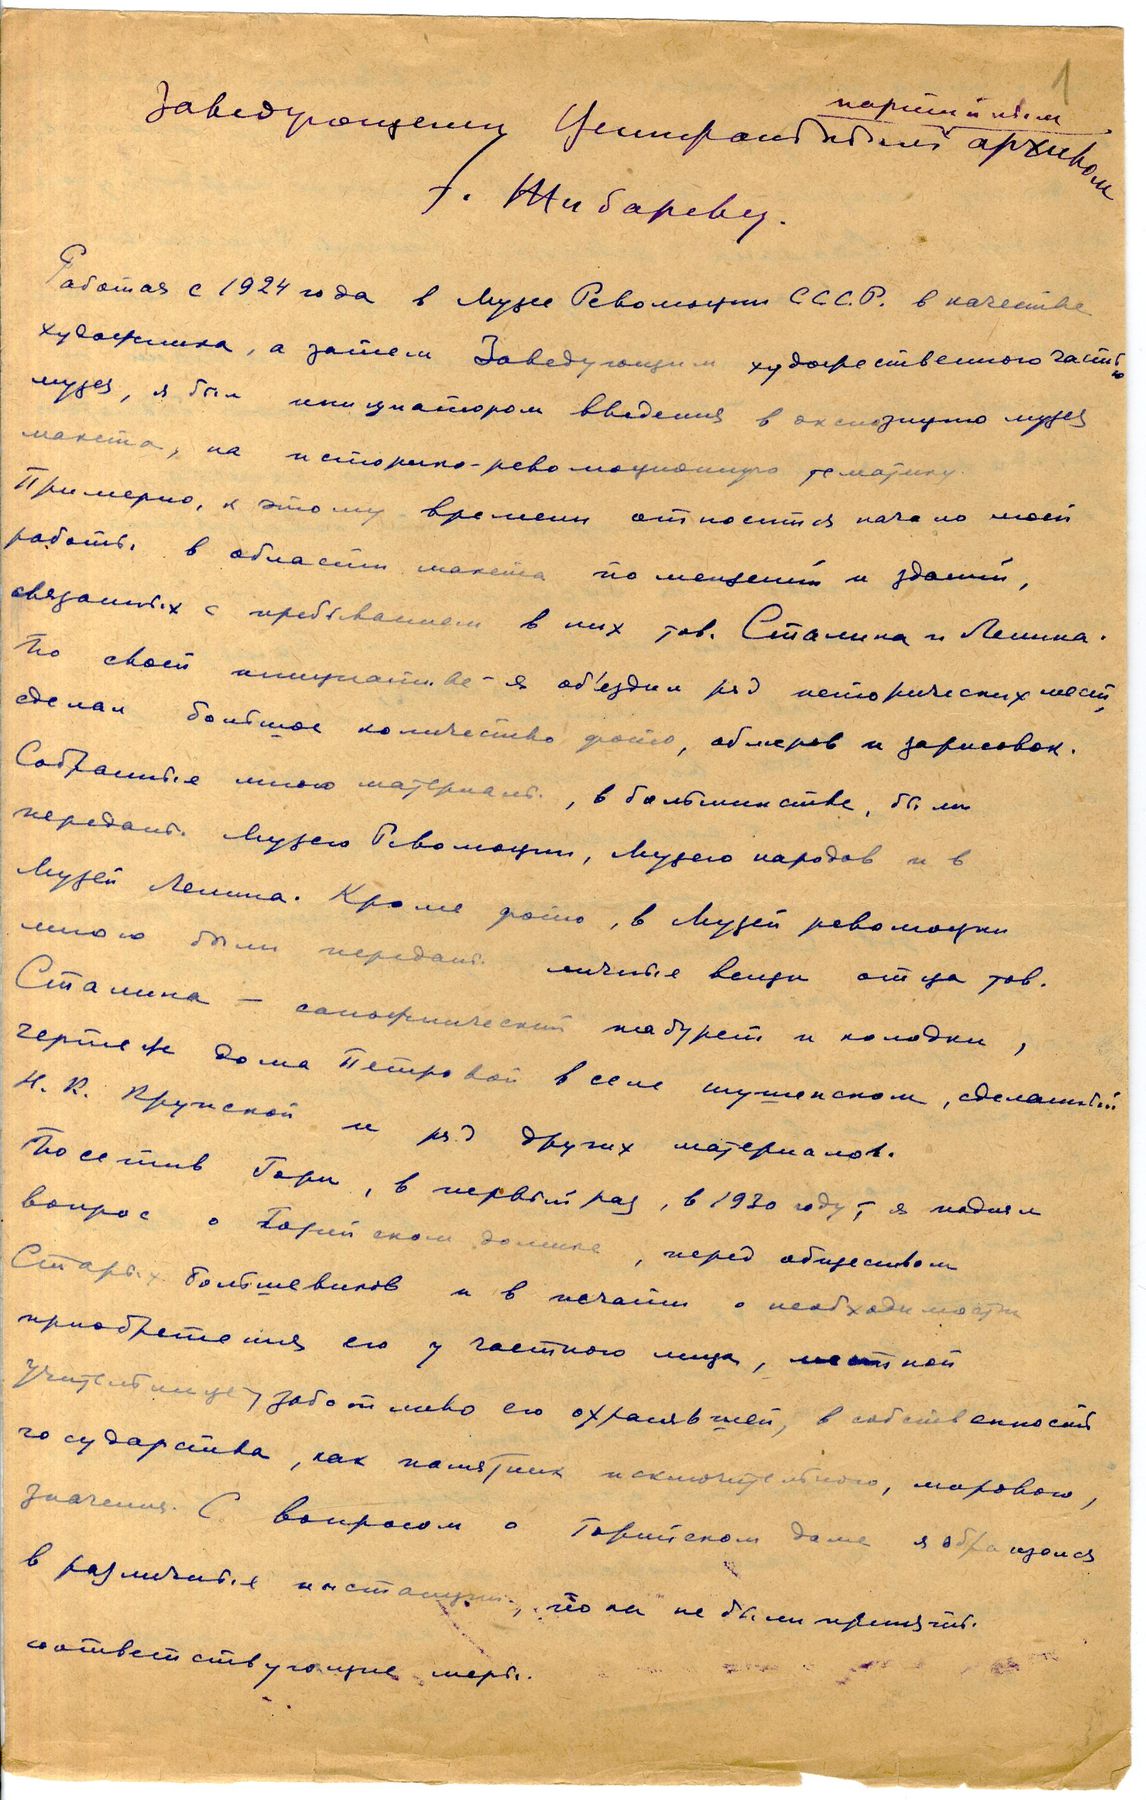 1
партийным
Заведующему Центральным архивом
т. Шибареву.
Работая с 1924 года в Музее Революции С.С.С.Р. в качестве
художника, а затем Заведующим художественного частью
музея, я был инициатором введения в экспозицию музея
макета, на историко-революционную тематику.
Примерно, к этому времени относится начало моей
работы в области макета помещений и зданий,
связанных с пребыванием в них тов. Сталина и Ленина.
По своей инициативе я об'ездил ряд исторических мест,
сделал большое количество фото, обмеров и зарисовок.
Собранные мною материалы, в большинстве, были
переданы Музею Революции, Музею народов и в
Музей Ленина. Кроме фото, в Музей революции
мною были переданы личные вещи отца тов.
Сталина – сапожнический табурет и колодки,
чертеж дома Петровой в селе Шушенском, сделанный
Н. К. Крупской и ряд других материалов.
Посетив Гори, в первый раз, в 1930 году, я поднял
вопрос о Горийском домике, перед обществом
Старых большевиков и в печати о необходимости
приобретения его у частного лица, местной
учительницы, заботливо его охранявшей, в собственность
государства, как памятник исключительного, мирового,
значения. С вопросом о Горийском доме я обращался
в различные инстанции, пока не были приняты
соответствующие меры.